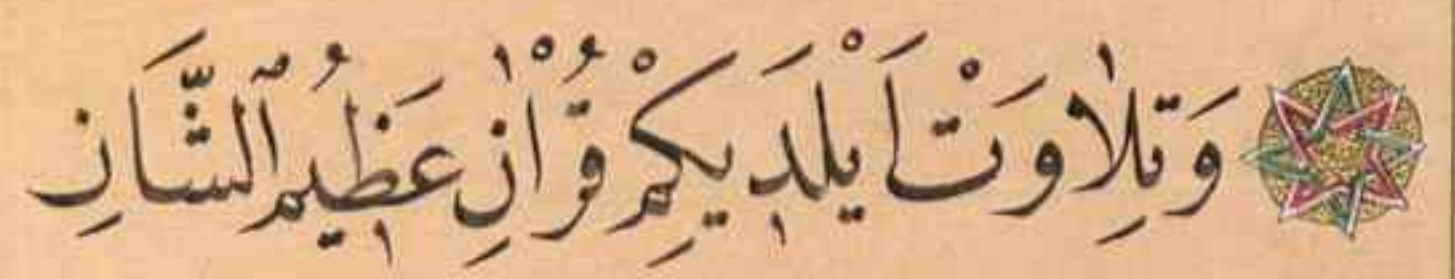 وَتِلاٰوَتْ اَيْلَدِيكِمْ قُرْاٰنِ عَظِيمُ ٱلشَّانِ